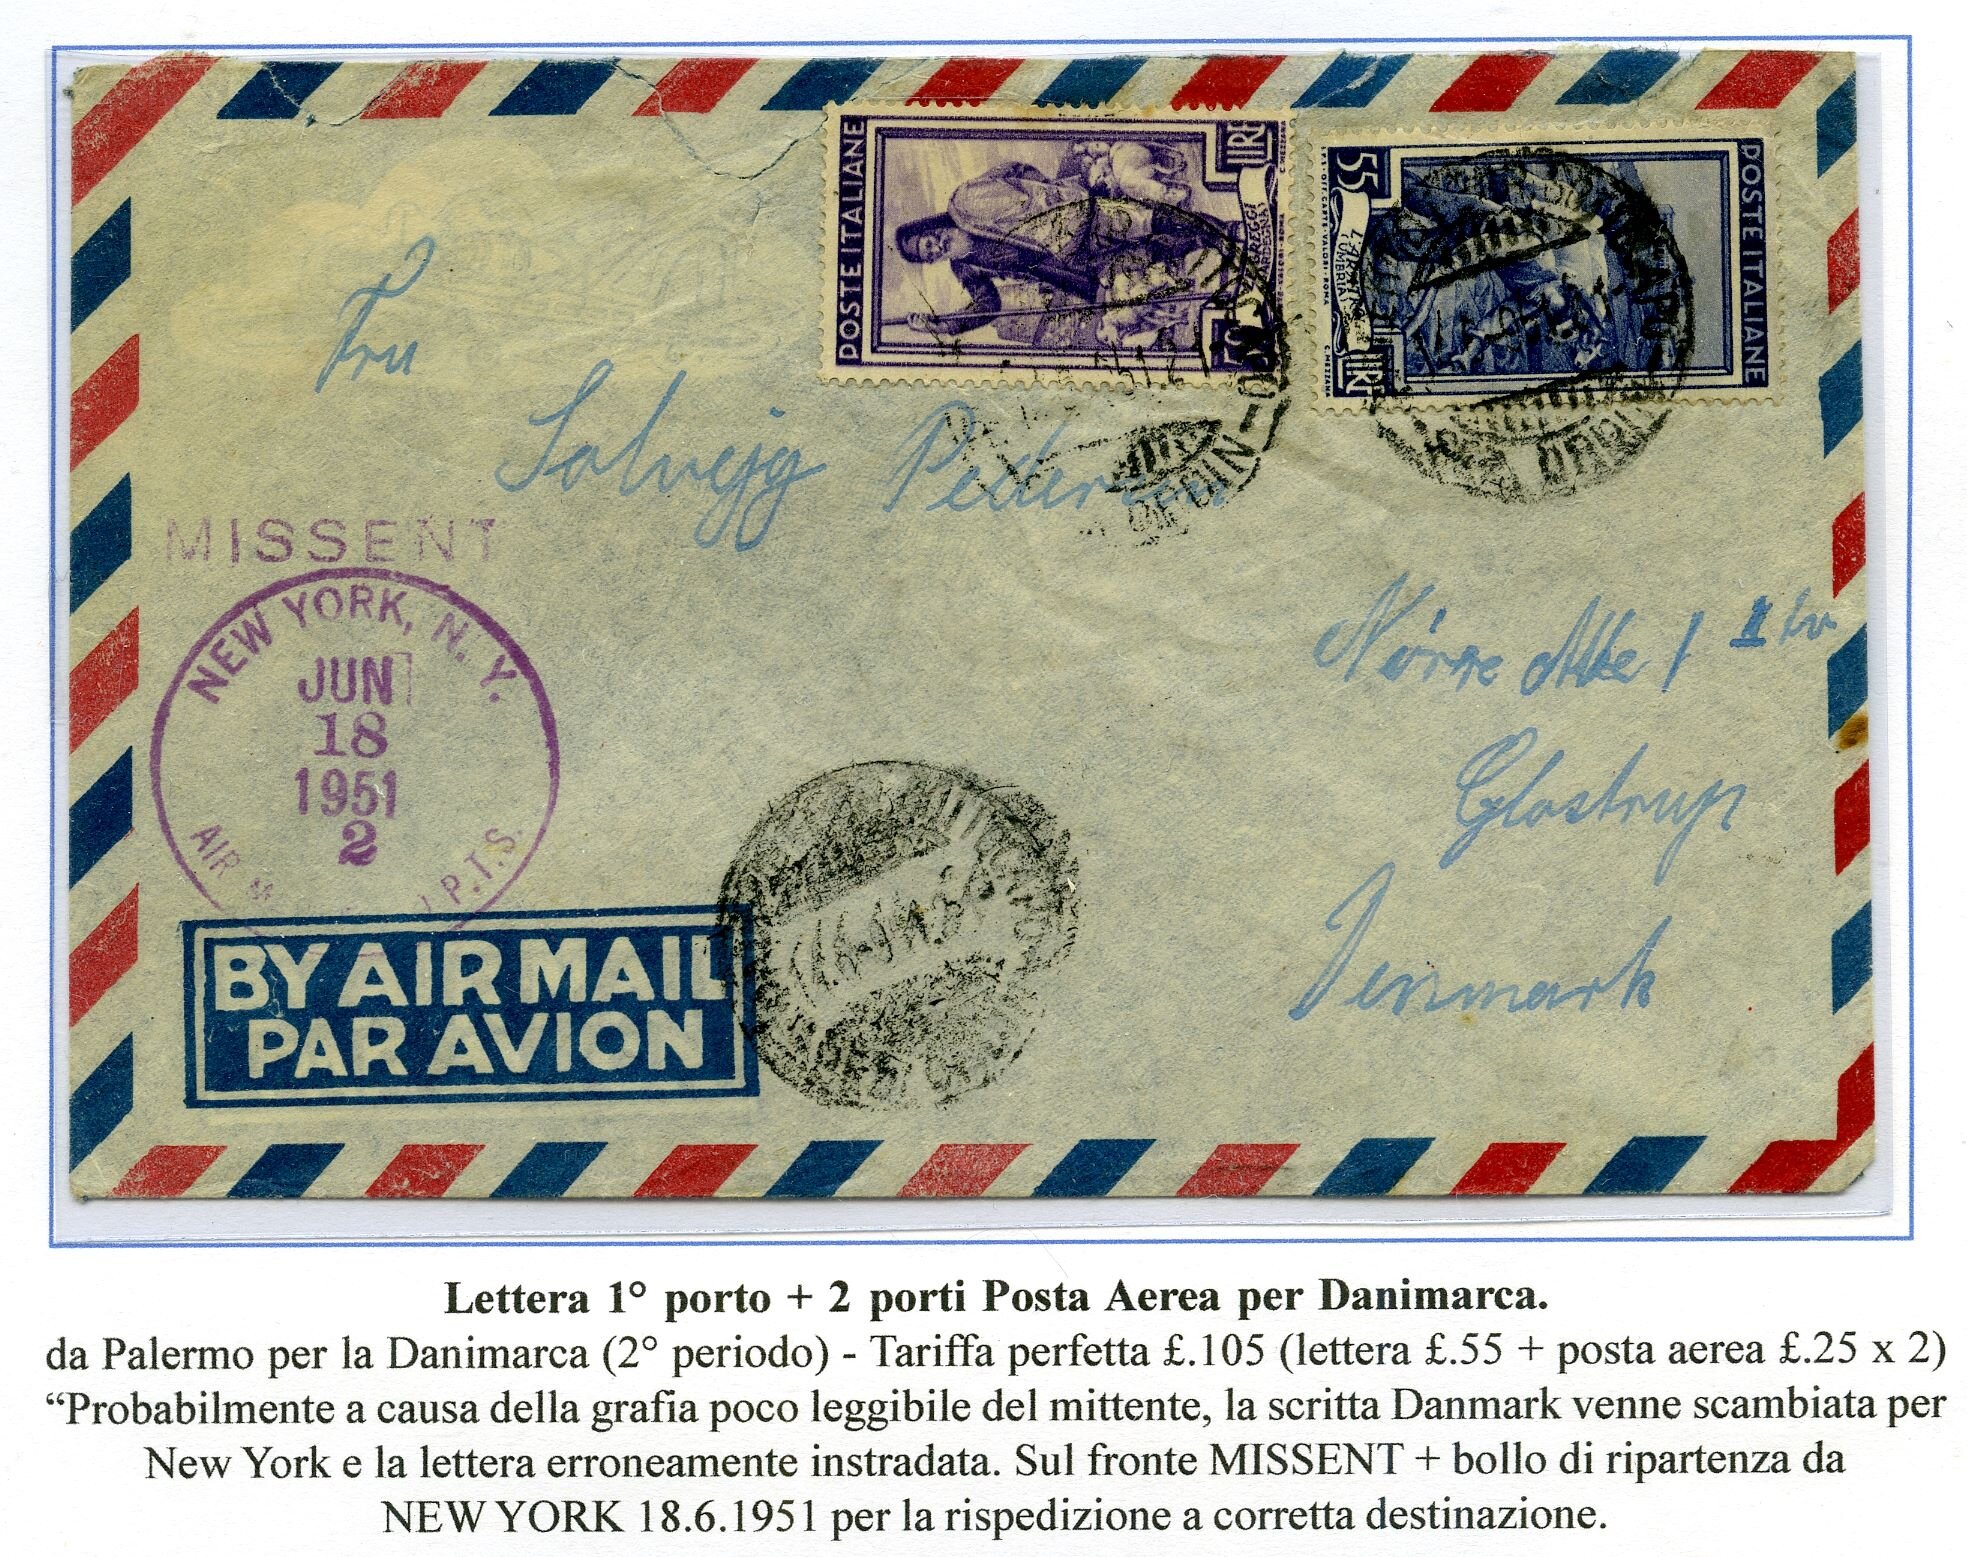 POSTE ITALIANE
LIRE
50
55
POSTE ITALIANE
LIRE
Fru
Solvejg Pedersen
MISSENT
NEW YORK, N. Y.
JUN
18
1951
2
AIR
Nörre Alle 1
Glostrup
Denmark
BY AIR MAIL
PAR AVION
Lettera 1° porto + 2 porti Posta Aerea per Danimarca.
da Palermo per la Danimarca (2° periodo) - Tariffa perfetta £.105 (lettera £.55 + posta aerea £.25 x 2)
“Probabilmente a causa della grafia poco leggibile del mittente, la scritta Danmark venne scambiata per
New York e la lettera erroneamente instradata. Sul fronte MISSENT + bollo di ripartenza da
NEW YORK 18.6.1951 per la rispedizione a corretta destinazione.